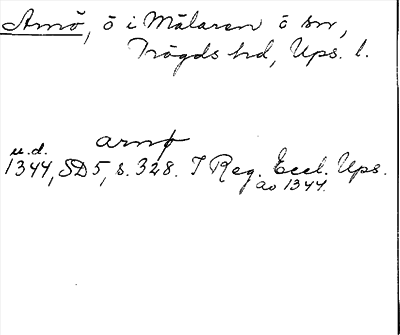 Arnö, ö i Mälaren o sn,
Trögds hd, Ups. l.
arnø
u.d.
1344, SD 5, s. 328. I Reg. Eccl. Ups.
ao 1344.